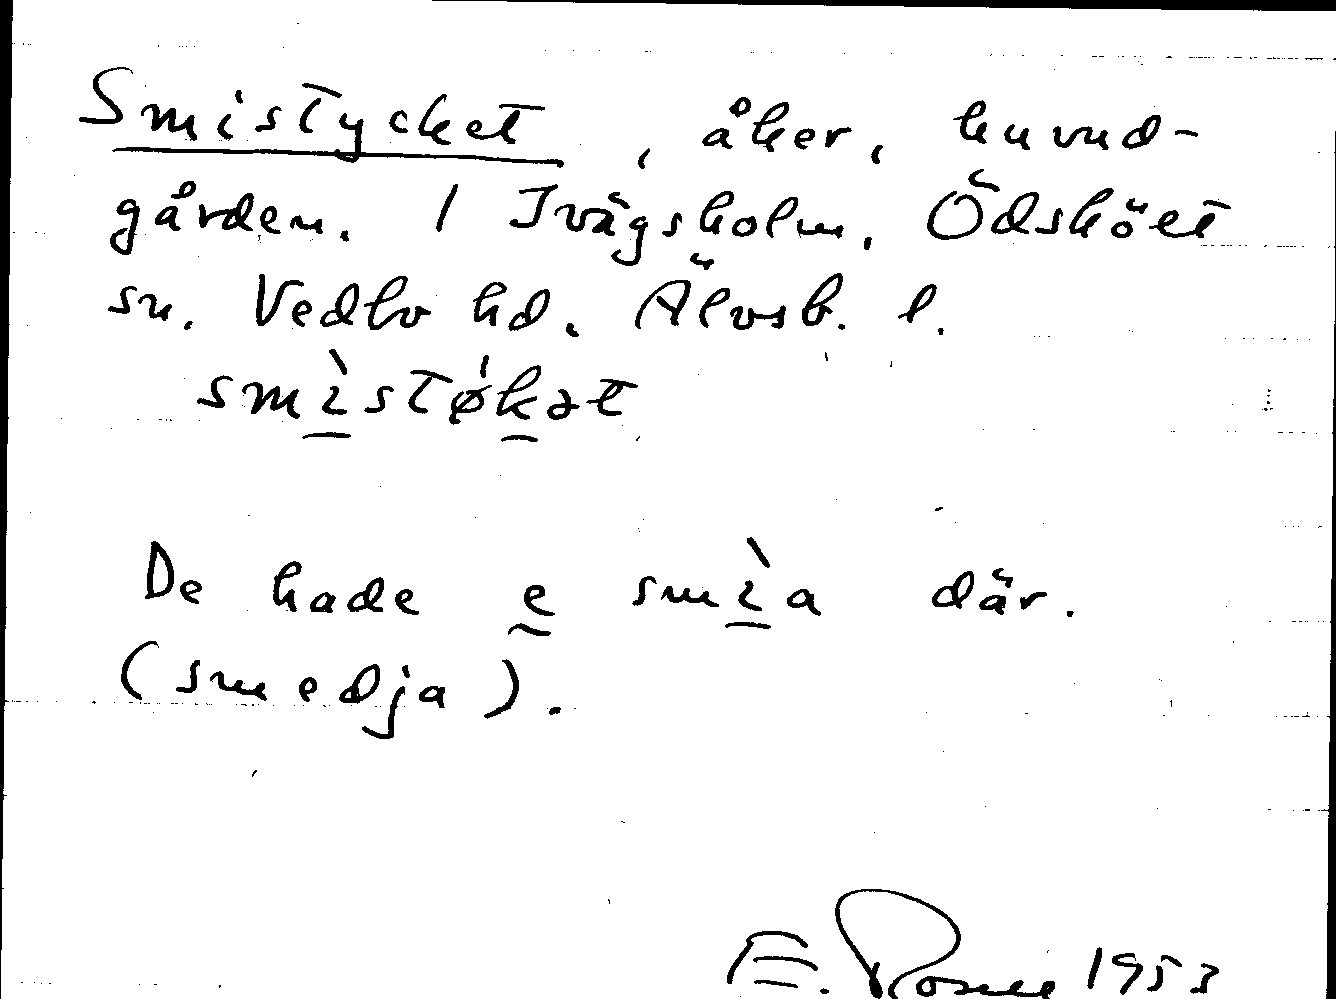 Smistycket, åker, huvud-
gården. 1 Ivägsholm, Ödsköлt
sn. Vedbo hd. Älvsb. l.
smìstøkət
De hade e smìa där.
(smedja).
E. 1953